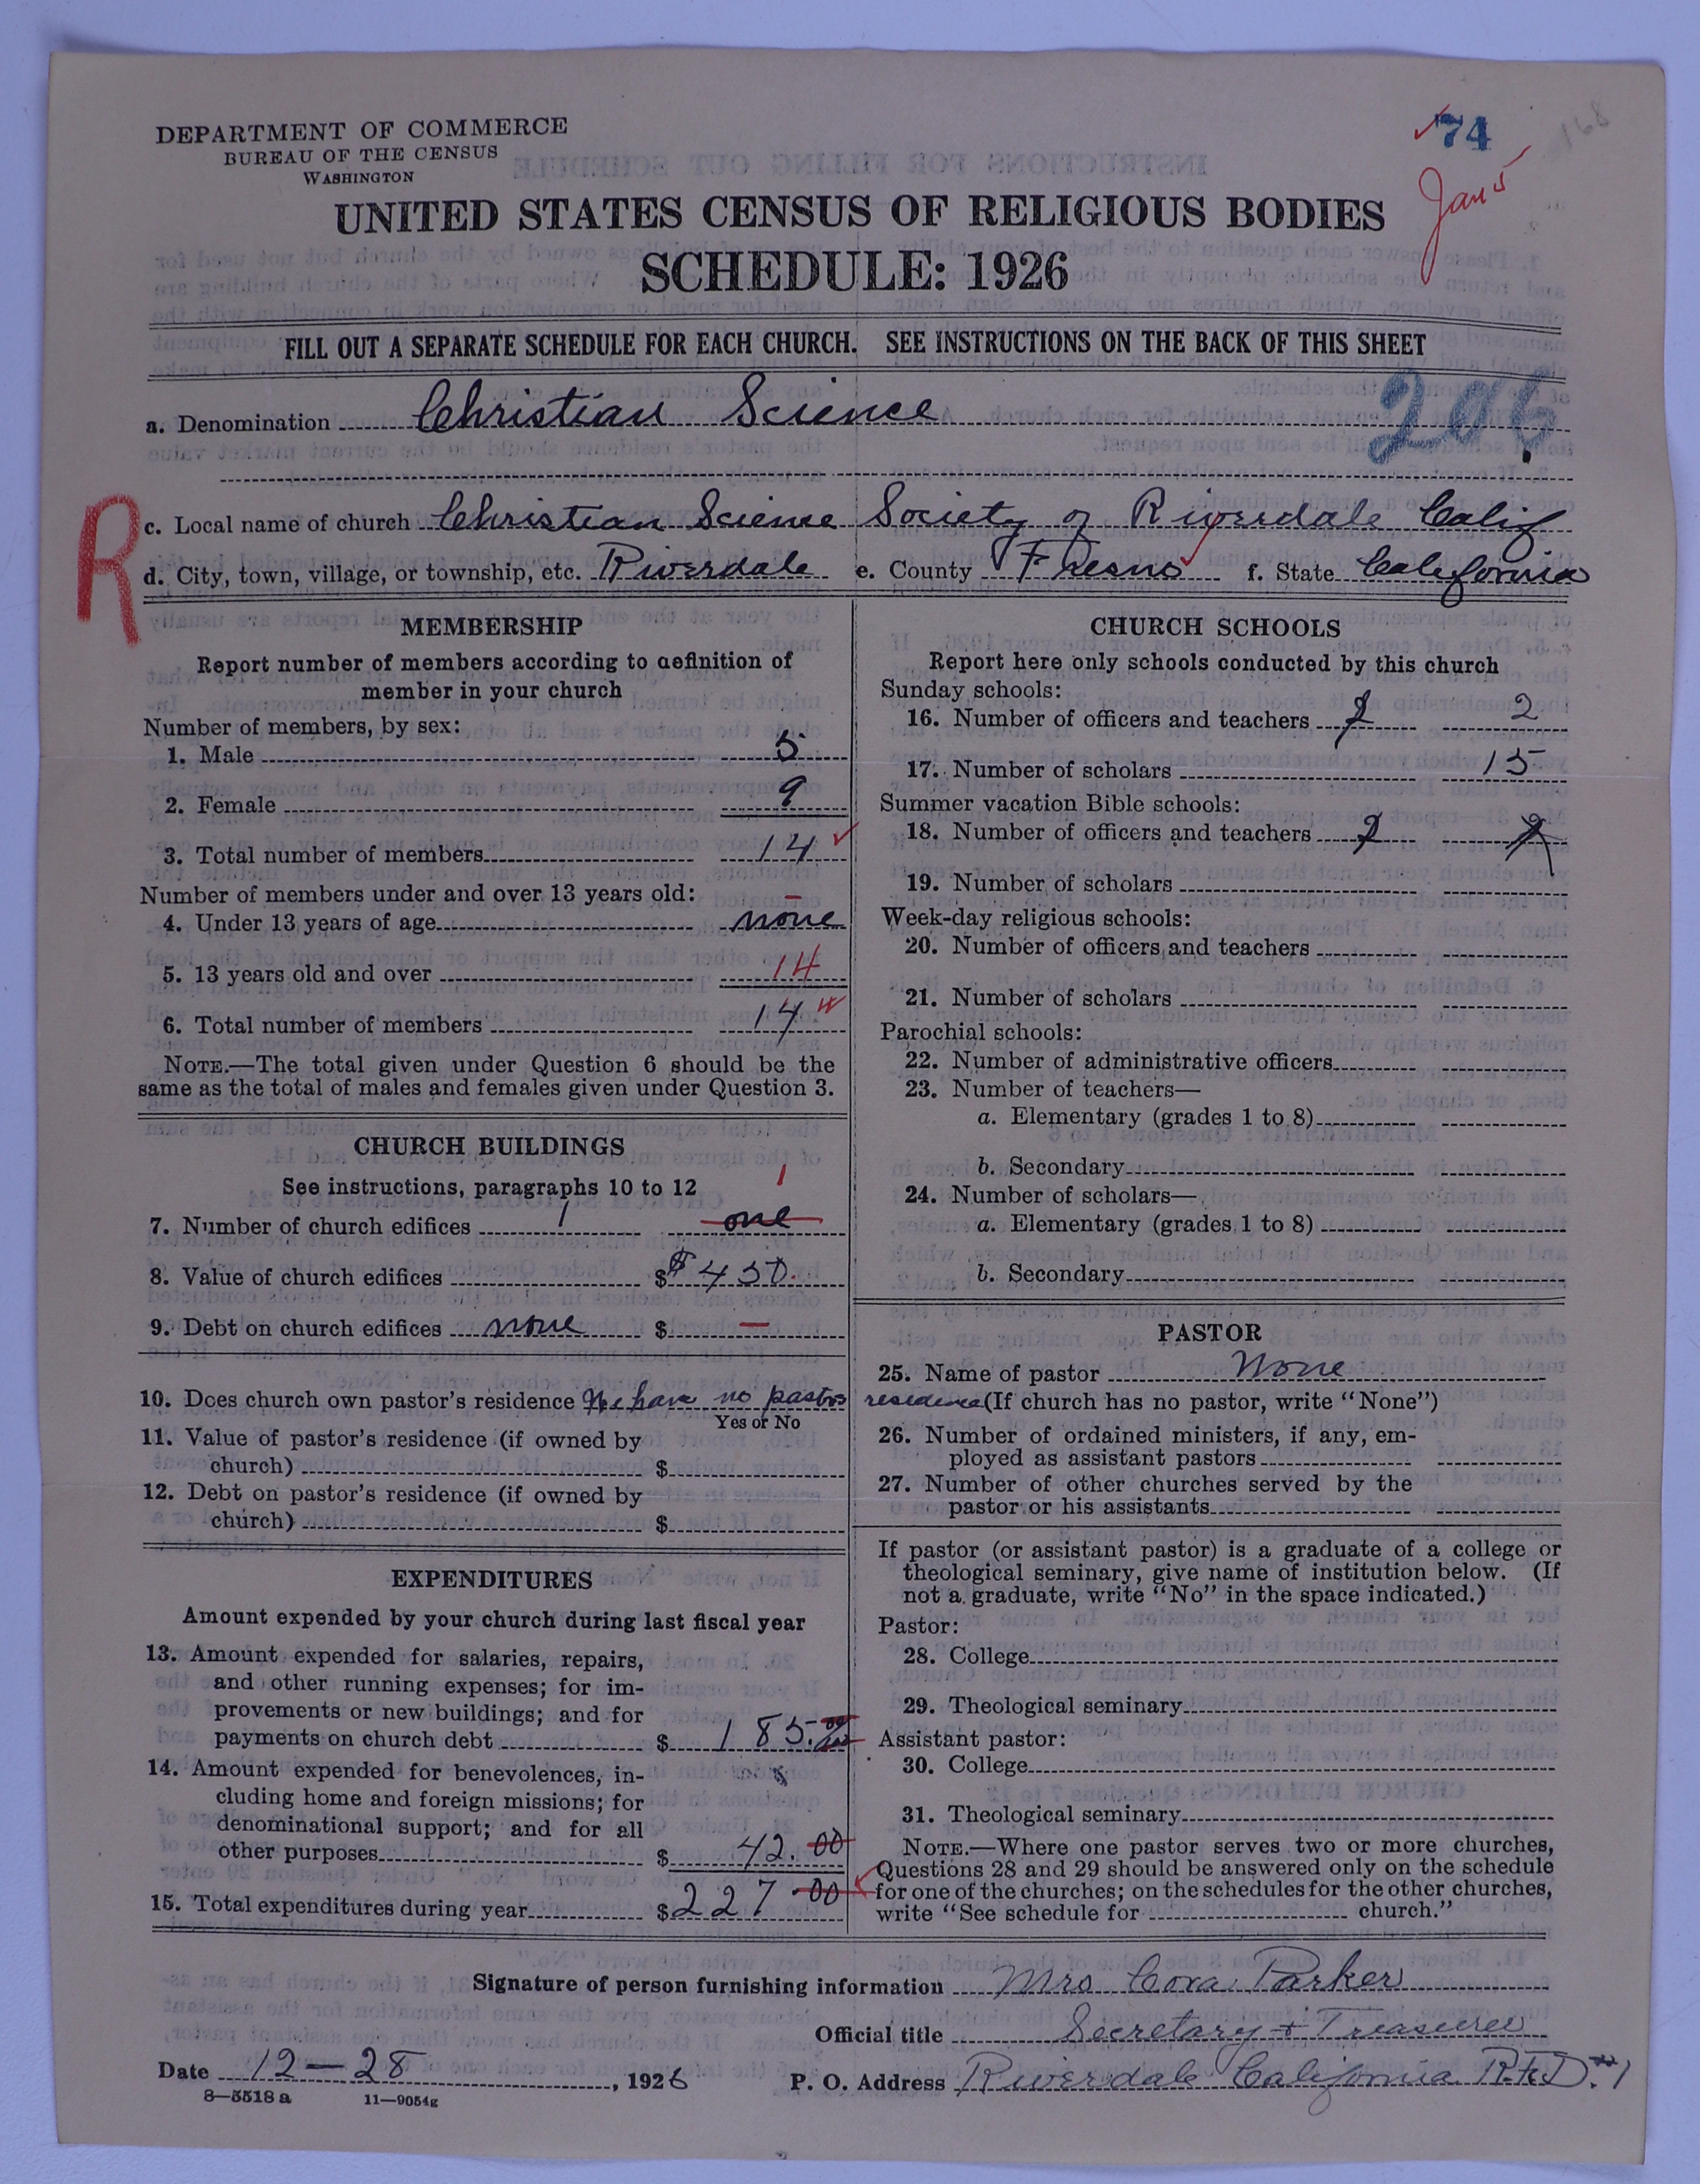 DEPARTMENT OF COMMERCE
BUREAU OF THE CENSUS
WASHINGTON
74
168
Jan 5
UNITED STATES CENSUS OF RELIGIOUS BODIES
SCHEDULE: 1926
FILL OUT A SEPARATE SCHEDULE FOR EACH CHURCH. SEE INSTRUCTIONS ON THE BACK OF THIS SHEET
a. Denomination Christian Science
206
R
c. Local name of church Christian Science Society of Riverdale Calif
d. City, town, village, or township, etc. Riverdale e. County Fresno f. State California
MEMBERSHIP
Report number of members according to definition of
member in your church
Number of members, by sex:
1. Male 5
2. Female 9
3. Total number of members 14
Number of members under and over 13 years old:
4. Under 13 years of age none
5. 13 years old and over 14
6. Total number of members 14
NOTE.—The total given under Question 6 should be the
same as the total of males and females given under Question 3.
CHURCH BUILDINGS
See instructions, paragraphs 10 to 12 1
7. Number of church edifices 1 one
8. Value of church edifices $ $450.
9. Debt on church edifices none $ —
10. Does church own pastor's residence We have no pastors residence
Yes or No
11. Value of pastor's residence (if owned by
church) $
12. Debt on pastor's residence (if owned by
church) $
EXPENDITURES
Amount expended by your church during last fiscal year
13. Amount expended for salaries, repairs,
and other running expenses; for im-
provements or new buildings; and for
payments on church debt $ 185.00
14. Amount expended for benevolences, in-
cluding home and foreign missions; for
denominational support; and for all
other purposes $ 42.00
15. Total expenditures during year $ 227.00
CHURCH SCHOOLS
Report here only schools conducted by this church
Sunday schools:
16. Number of officers and teachers 2 2
17. Number of scholars 15
Summer vacation Bible schools:
18. Number of officers and teachers 2 2
19. Number of scholars
Week-day religious schools:
20. Number of officers and teachers
21. Number of scholars
Parochial schools:
22. Number of administrative officers
23. Number of teachers—
a. Elementary (grades 1 to 8)
b. Secondary
24. Number of scholars—
a. Elementary (grades 1 to 8)
b. Secondary
PASTOR
25. Name of pastor None
(If church has no pastor, write "None")
26. Number of ordained ministers, if any, em-
ployed as assistant pastors
27. Number of other churches served by the
pastor or his assistants
If pastor (or assistant pastor) is a graduate of a college or
theological seminary, give name of institution below. (If
not a graduate, write "No" in the space indicated.)
Pastor:
28. College
29. Theological seminary
Assistant pastor:
30. College
31. Theological seminary
NOTE.—Where one pastor serves two or more churches,
Questions 28 and 29 should be answered only on the schedule
for one of the churches; on the schedules for the other churches,
write "See schedule for church."
Signature of person furnishing information Mrs Cora Parker
Official title Secretary + Treasurer
Date 12—28, 1926 P. O. Address Riverdale California R.F.D. #1
8—5518 a 11—9054g